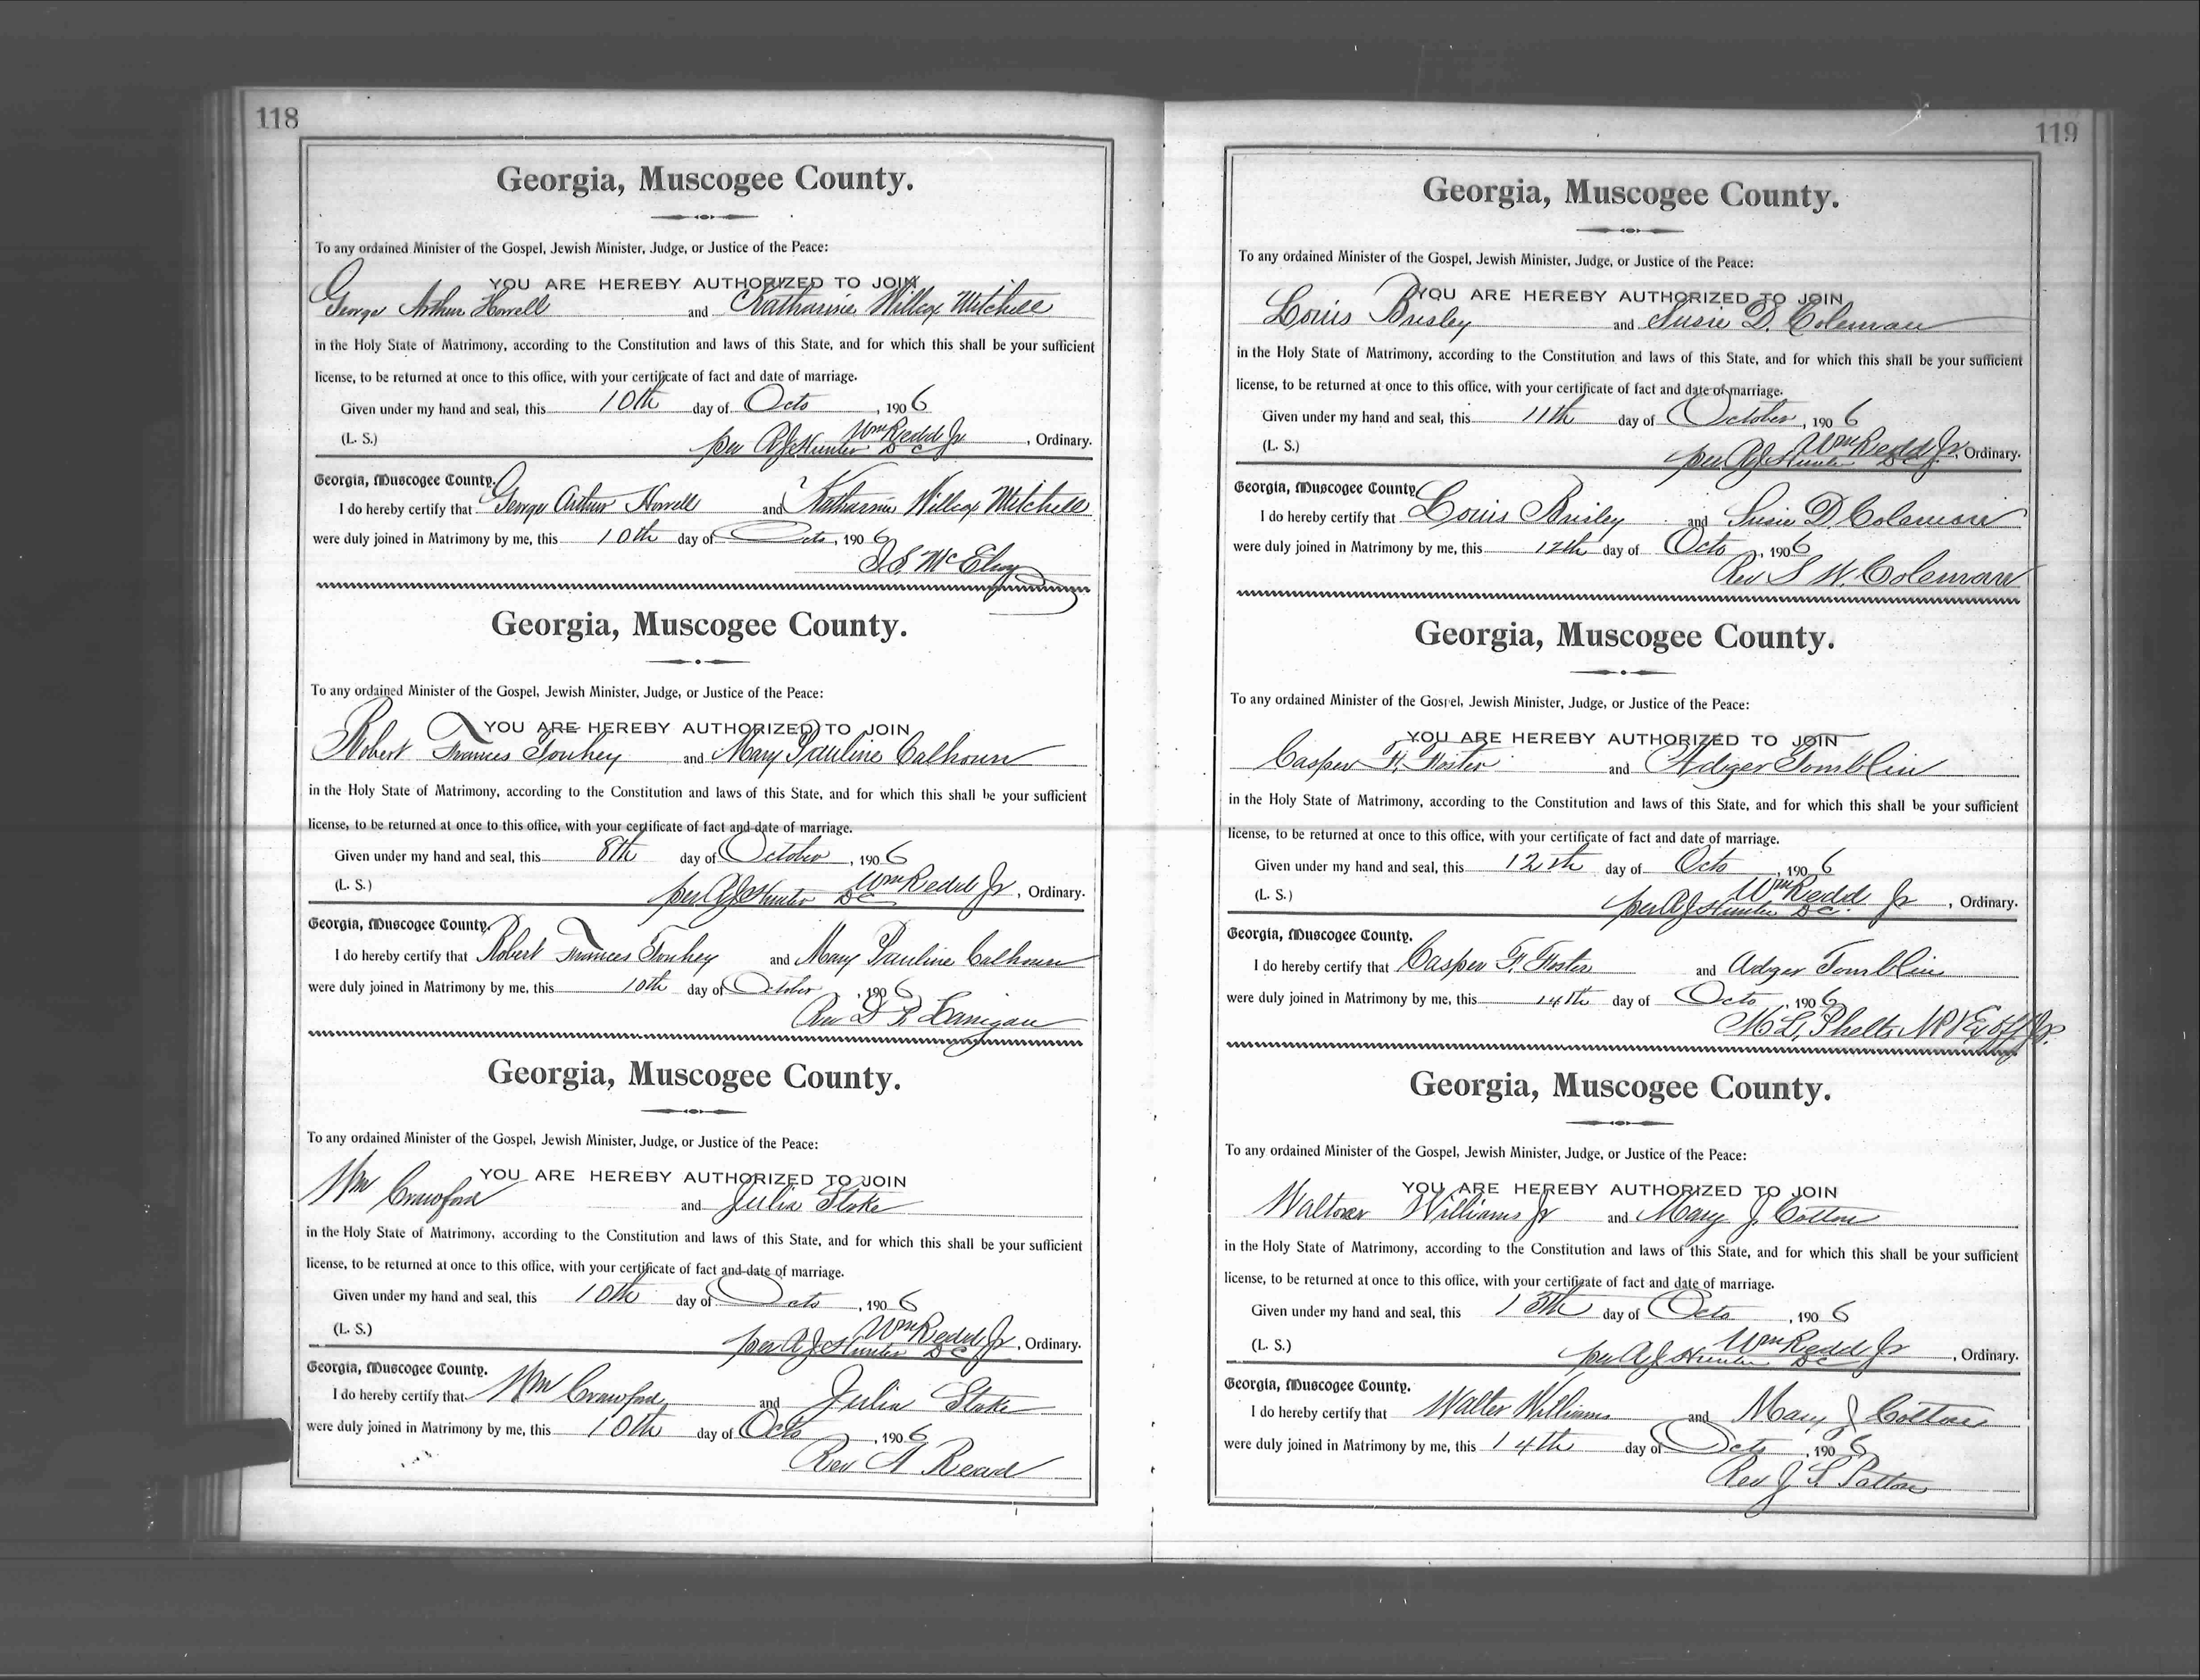 118
Georgia, Muscogee County.
To any ordained Minister of the Gospel, Jewish Minister, Judge, or Justice of the Peace:
YOU ARE HEREBY AUTHORIZED TO JOIN
George Arthur Howell and Katharine Willcox Mitchell
in the Holy State of Matrimony, according to the Constitution and laws of this State, and for which this shall be your sufficient
license, to be returned at once to this office, with your certificate of fact and date of marriage.
Given under my hand and seal, this 10th day of Octo, 1906
Wm Redd Jr
(L. S.) per A J Hunter D C, Ordinary.
Georgia, Muscogee County.
I do hereby certify that George Arthur Howell and Katharine Willcox Mitchell
were duly joined in Matrimony by me, this 10th day of Octo, 1906
S. McElroy
Georgia, Muscogee County.
To any ordained Minister of the Gospel, Jewish Minister, Judge, or Justice of the Peace:
YOU ARE HEREBY AUTHORIZED TO JOIN
Robert Frances Touhey and Mary Pauline Calhoun
in the Holy State of Matrimony, according to the Constitution and laws of this State, and for which this shall be your sufficient
license, to be returned at once to this office, with your certificate of fact and date of marriage.
Given under my hand and seal, this 8th day of October, 1906
Wm Redd Jr
(L. S.) per A J Hunter D C, Ordinary.
Georgia, Muscogee County.
I do hereby certify that Robert Frances Touhey and Mary Pauline Calhoun
were duly joined in Matrimony by me, this 10th day of October, 1906
Rev Lanigan
Georgia, Muscogee County.
To any ordained Minister of the Gospel, Jewish Minister, Judge, or Justice of the Peace:
YOU ARE HEREBY AUTHORIZED TO JOIN
Wm Crawford and Julia Stoke
in the Holy State of Matrimony, according to the Constitution and laws of this State, and for which this shall be your sufficient
license, to be returned at once to this office, with your certificate of fact and date of marriage.
Given under my hand and seal, this 10th day of Octo, 1906
Wm Redd Jr
(L. S.) per A J Hunter D C, Ordinary.
Georgia, Muscogee County.
I do hereby certify that Wm Crawford and Julia Stoke
were duly joined in Matrimony by me, this 10th day of Octo, 1906
Rev A Read
119
Georgia, Muscogee County.
To any ordained Minister of the Gospel, Jewish Minister, Judge, or Justice of the Peace:
YOU ARE HEREBY AUTHORIZED TO JOIN
Louis Brisley and Susie D. Coleman
in the Holy State of Matrimony, according to the Constitution and laws of this State, and for which this shall be your sufficient
license, to be returned at once to this office, with your certificate of fact and date of marriage.
Given under my hand and seal, this 11th day of October, 1906
Wm Redd Jr
(L. S.) per A J Hunter D C, Ordinary.
Georgia, Muscogee County.
I do hereby certify that Louis Brisley and Susie D. Coleman
were duly joined in Matrimony by me, this 12th day of Octo, 1906
Rev S W. Coleman
Georgia, Muscogee County.
To any ordained Minister of the Gospel, Jewish Minister, Judge, or Justice of the Peace:
YOU ARE HEREBY AUTHORIZED TO JOIN
Casper F. Foster and Adger Tomblin
in the Holy State of Matrimony, according to the Constitution and laws of this State, and for which this shall be your sufficient
license, to be returned at once to this office, with your certificate of fact and date of marriage.
Given under my hand and seal, this 12th day of Octo, 1906
Wm Redd Jr
(L. S.) per A J Hunter D C, Ordinary.
Georgia, Muscogee County.
I do hereby certify that Casper F. Foster and Adger Tomblin
were duly joined in Matrimony by me, this 14th day of Octo, 1906
M. L. Phelts
Georgia, Muscogee County.
To any ordained Minister of the Gospel, Jewish Minister, Judge, or Justice of the Peace:
YOU ARE HEREBY AUTHORIZED TO JOIN
Walter Williams Jr and Mary J. Cotton
in the Holy State of Matrimony, according to the Constitution and laws of this State, and for which this shall be your sufficient
license, to be returned at once to this office, with your certificate of fact and date of marriage.
Given under my hand and seal, this 13th day of Octo, 1906
Wm Redd Jr
(L. S.) per A J Hunter D C, Ordinary.
Georgia, Muscogee County.
I do hereby certify that Walter Williams and Mary J Cotton
were duly joined in Matrimony by me, this 14th day of Octo, 1906
Rev J. S Patton